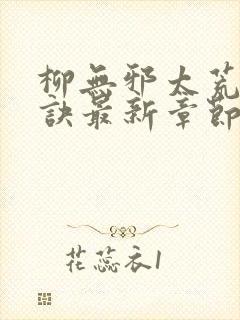 柳無邪太荒
訣最新章節
花蕊衣1